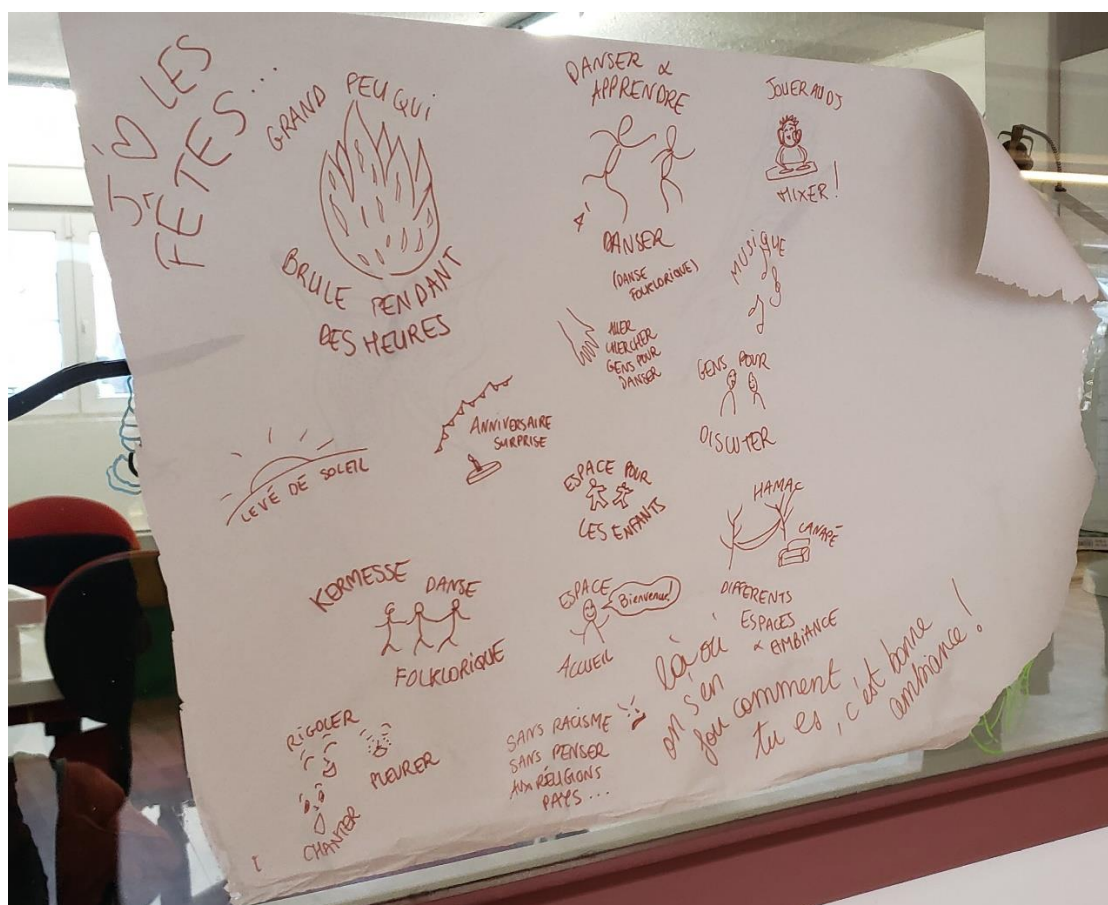 J'♡ LES
FÊTES...
GRAND FEU QUI
BRULE PENDANT
DES HEURES
DANSER &
APPRENDRE
DANSER
(DANSE
FOLKLORIQUE)
JOUER AU DJ
MIXER !
MUSIQUE
ALLER
CHERCHER
GENS POUR
DANSER
GENS POUR
DISCUTER
LEVÉ DE SOLEIL
ANNIVERSAIRE
SURPRISE
ESPACE POUR
LES ENFANTS
HAMAC
CANAPÉ
DIFFERENTS
ESPACES
& AMBIANCE
KERMESSE DANSE
FOLKLORIQUE
ESPACE
Bienvenue!
ACCUEIL
RIGOLER
PLEURER
CHANTER
SANS RACISME
SANS PENSER
AUX RÉLIGIONS
PAYS...
là où
on s'en
fou comment
tu es, c'est bonne
ambiance !